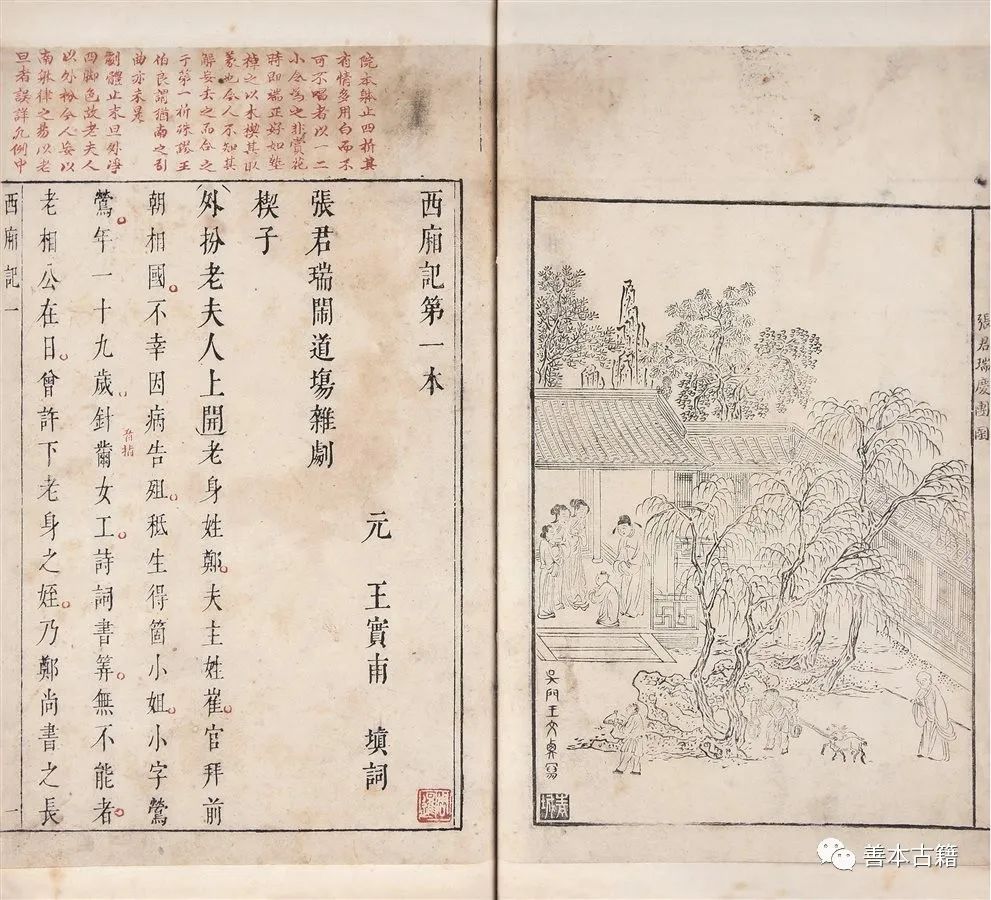 張君瑞慶團圞
吳門王文衡寫
西廂記第一本
張君瑞鬧道塲雜劇
元 王實甫 塡詞
楔子
外扮老夫人上開老身姓鄭夫主姓崔官拜前
朝相國不幸因病告殂秪生得箇小姐小字鶯
鶯年一十九歲針黹女工詩詞書筭無不能者
老相公在日曾許下老身之姪乃鄭尚書之長
西廂記一
一
音指
院本皆止四折其
有情多用白而不
可不唱者以一二
小令爲之非賞花
時即端正好如墊
樟之以木楔其取
義也今人不知其
解妄去之而合之
于第一折殊謬王
伯良謂猶南之引
曲亦未是
劇體止末旦外淨
四脚色故老夫人
以外扮今人妄以
南戲律之易以老
旦者誤詳凡例中
善本古籍